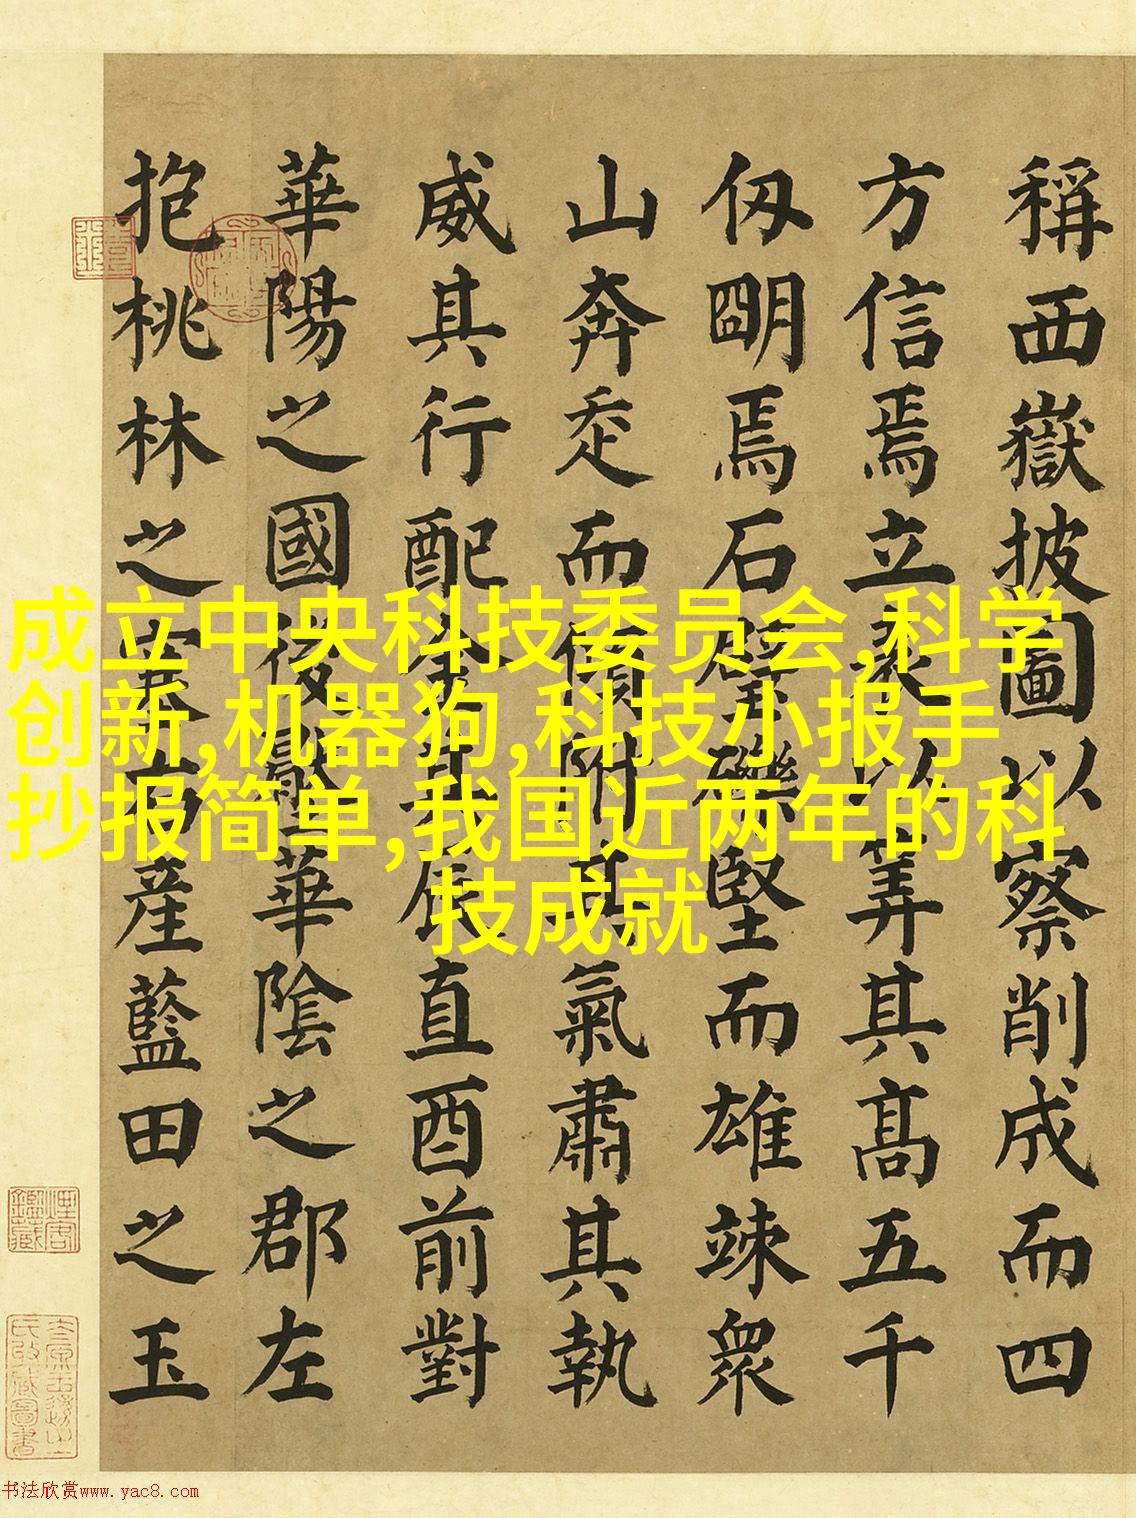 稱西嶽披圖以察削成而四
方信焉立表以筭其髙五千
仭朙焉石壁礫堅而雄竦衆
山奔而傾附其氣肅其執
威其行配金其辰直酉前對
華陽之國後壓華陰之郡左
抱桃林之塞右産藍田之玉
成立中央科技委员会,科学
创新,机器狗,科技小报手
抄报简单,我国近两年的科
技成就
书法欣赏www.yac8.com